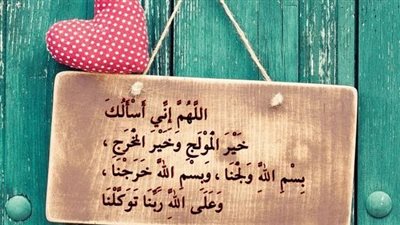 اللَّهُمَّ إِنِّي أَسْأَلُكَ
خَيْرَ الْمَوْلَجِ وَخَيْرَ الْمَخْرَجِ ،
بِسْمِ اللَّهِ وَلَجْنَا ، وَبِسْمِ اللَّهِ خَرَجْنَا ،
وَعَلَى اللَّهِ رَبِّنَا تَوَكَّلْنَا